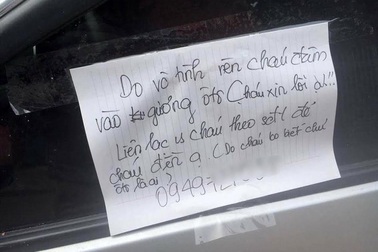 Do vô tình nên cháu đâm
vào gương ôtô Cháu xin lỗi ạ!!
Liên lạc vs cháu theo số đt để
cháu đền ạ (Do cháu ko biết chủ
ôtô là ai)
0949